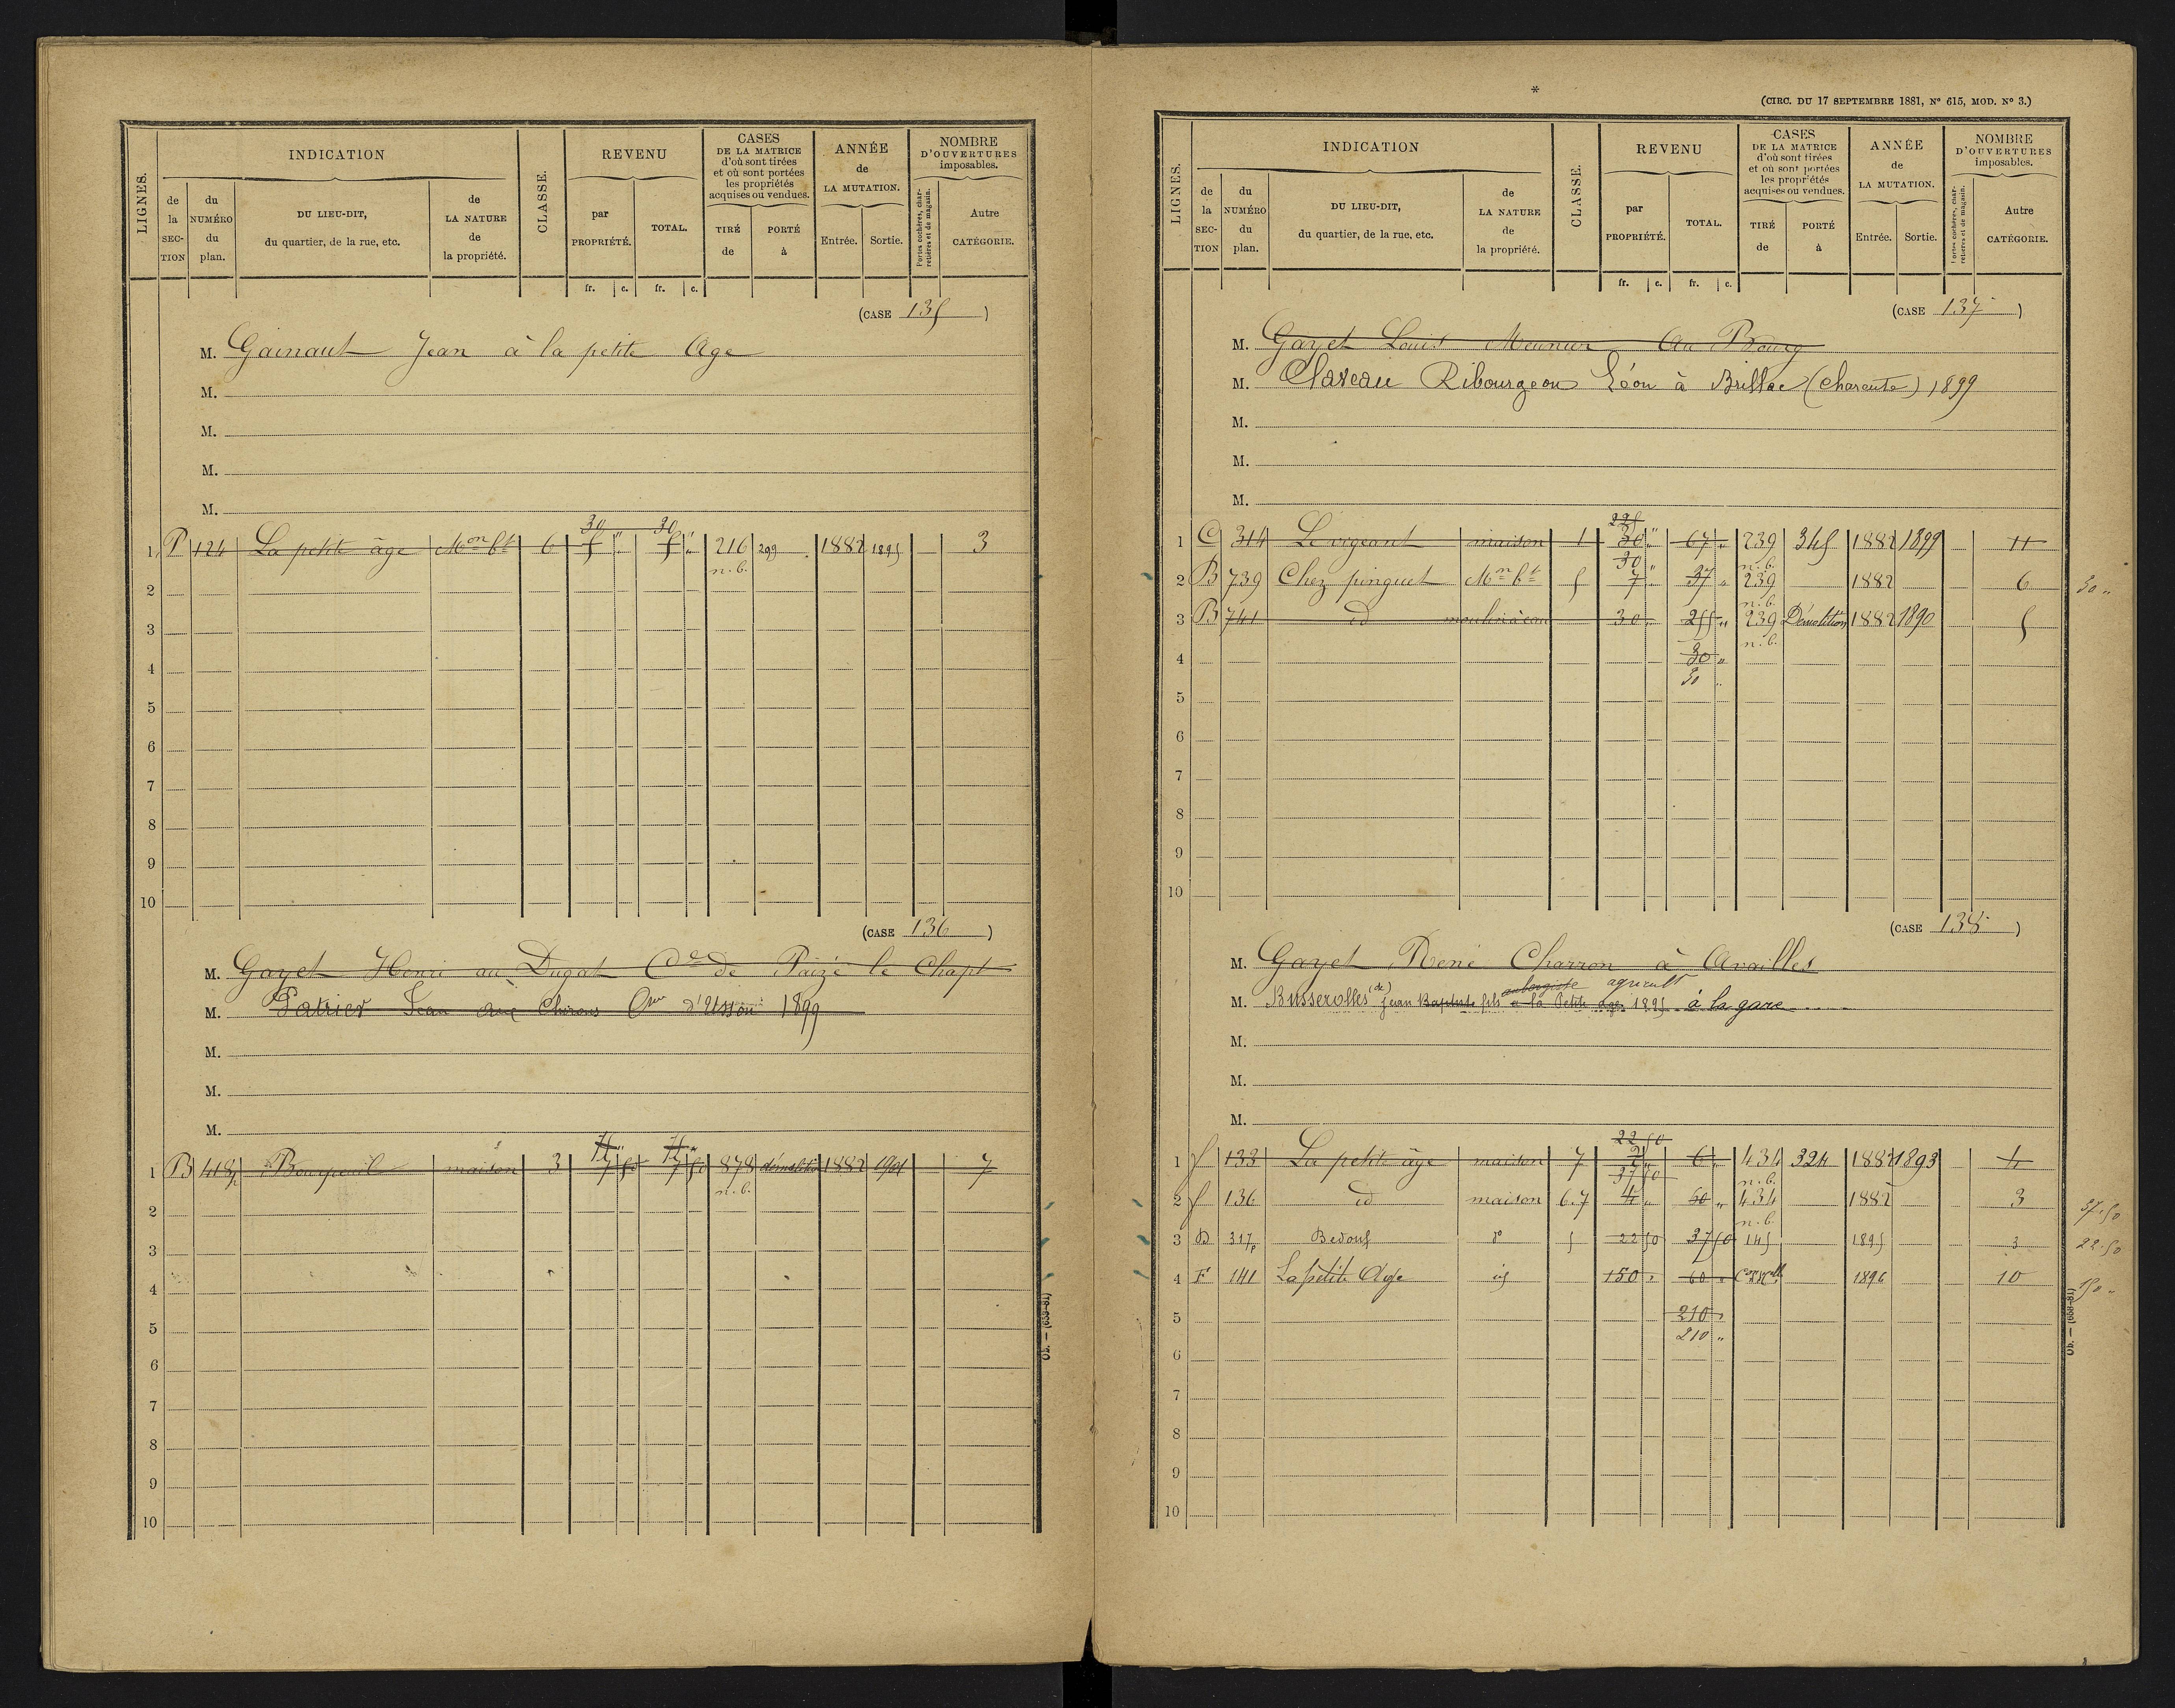 LIGNES.
INDICATION
de la SECTION
du NUMÉRO du plan.
DU LIEU-DIT, du quartier, de la rue, etc.
de LA NATURE de la propriété.
CLASSE.
REVENU
par PROPRIÉTÉ.
TOTAL.
CASES DE LA MATRICE d'où sont tirées et où sont portées les propriétés acquises ou vendues.
TIRÉ de
PORTÉ à
ANNÉE de LA MUTATION.
Entrée.
Sortie.
NOMBRE D'OUVERTURES imposables.
Portes cochères, charretières et de magasin.
Autre CATÉGORIE.
fr. c. fr. c.
(CASE 135)
M. Gainaut Jean à la petite Age
M.
M.
M.
M.
30 " 30 "
1 P 124 La petite âge Mon bt 6 5 " 5 " 216 299 1882 1895 3
n.b.
2
3
4
5
6
7
8
9
10
(CASE 136)
M. Gayet Henri au Dugat Cne de Paizé le Chapt
M. Patrier Jean aux Chirons Cne d'Usson 1899
M.
M.
M.
1 B 418p Bourpeuil maison 3 7 50 7 50 878 démolition 1882 1901 7
n.b.
2
3
4
5
6
7
8
9
10
Ob. — (658-81)
*
(CIRC. DU 17 SEPTEMBRE 1881, No 615, MOD. No 3.)
LIGNES.
INDICATION
de la SECTION
du NUMÉRO du plan.
DU LIEU-DIT, du quartier, de la rue, etc.
de LA NATURE de la propriété.
CLASSE.
REVENU
par PROPRIÉTÉ.
TOTAL.
CASES DE LA MATRICE d'où sont tirées et où sont portées les propriétés acquises ou vendues.
TIRÉ de
PORTÉ à
ANNÉE de LA MUTATION.
Entrée.
Sortie.
NOMBRE D'OUVERTURES imposables.
Portes cochères, charretières et de magasin.
Autre CATÉGORIE.
fr. c. fr. c.
(CASE 137)
M. Gayet Louis Meunier Au Bourg
M. Claveau Ribourgeon Léon à Brillac (Charente) 1899
M.
M.
M.
225 "
1 C 314 Le vigeant maison 1 30 " 67 " 239 345 1882 1899 11
30 " n.b.
2 B 739 Chez pinguet Mon bt 5 7 " 37 " 239 1882 6 30 "
n.b.
3 B 741 id moulin à eau 30 " 255 " 239 Démolition 1882 1890 5
n.b.
4 30 "
30 "
5
6
7
8
9
10
(CASE 138)
M. Gayet René Charron à Availles
aubergiste agricult
M. Busserolles (de) Jean Baptiste fils à la Petite age 1895 à la gare
M.
M.
M.
22 50
1 f 133 La petite âge maison 7 2 " 6 " 434 324 1882 1893 4
37 50 n.b.
2 f 136 id maison 6.7 4 " 60 " 434 1882 3 37.50
n.b.
3 B 317p Bedouf do 5 22 50 37 50 145 1895 3 22.50
4 F 141 La petite Age id 150 " 60 " Con nlle 1896 10 150 "
5 210 "
210 "
6
7
8
9
10
Ob. — (658-81)